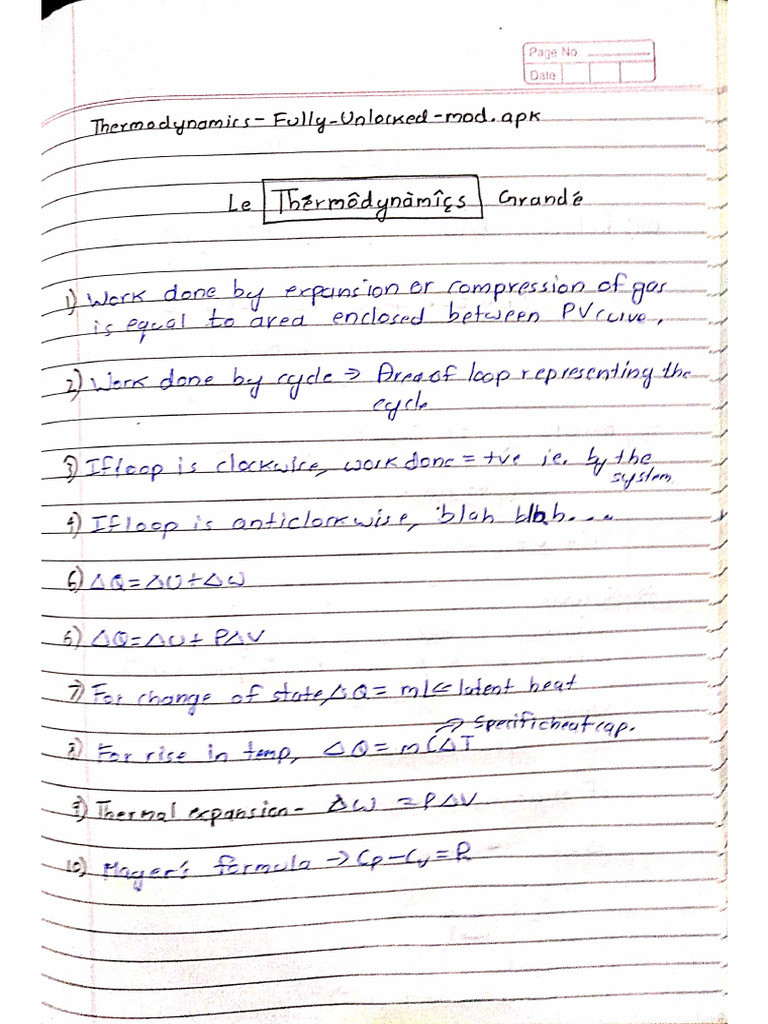 Page No
Date
Thermodynamics-Fully-Unlocked-mod.apk
Le Thérmôdynàmîçs Grandé
1) Work done by expansion or compression of gas
is equal to area enclosed between PV curve.
2) Work done by cycle ⇒ Area of loop representing the
cycle
3) If loop is clockwise, work done = +ve ie. by the
system
4) If loop is anticlockwise, blah blah....
6) ΔQ=ΔU+ΔW
5) ΔQ=ΔU+ PΔV
7) For change of state, ΔQ = ml ← latent heat
→ Specific heat cap.
8) For rise in temp, ΔQ = mCΔT
9) Thermal expansion- ΔW = PΔV
10) Mayer's formula → Cp-Cv=R